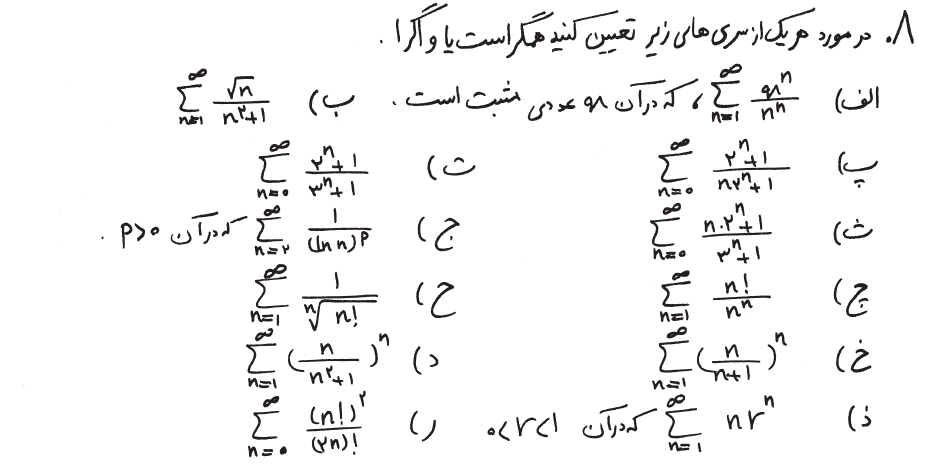 ۸. در مورد هر یک از سری های زیر تعیین کنید همگراست یا واگرا.
الف) $\sum_{n=1}^{\infty} \frac{a^n}{n^n}$، که در آن a عددی مثبت است. ب) $\sum_{n=1}^{\infty} \frac{\sqrt{n}}{n^۲+۱}$
پ) $\sum_{n=0}^{\infty} \frac{۲^n+۱}{n۲^n+۱}$ ت) $\sum_{n=0}^{\infty} \frac{۲^n+۱}{۳^n+۱}$
ث) $\sum_{n=0}^{\infty} \frac{n.۲^n+۱}{۳^n+۱}$ ج) $\sum_{n=۲}^{\infty} \frac{۱}{(\ln n)^p}$ که در آن p>0.
چ) $\sum_{n=1}^{\infty} \frac{n!}{n^n}$ ح) $\sum_{n=1}^{\infty} \frac{۱}{\sqrt[n]{n!}}$
خ) $\sum_{n=1}^{\infty} (\frac{n}{n+1})^n$ د) $\sum_{n=1}^{\infty} (\frac{n}{n^۲+1})^n$
ذ) $\sum_{n=1}^{\infty} nr^n$ که در آن 0<r<1 ر) $\sum_{n=0}^{\infty} \frac{(n!)^۲}{(۲n)!}$